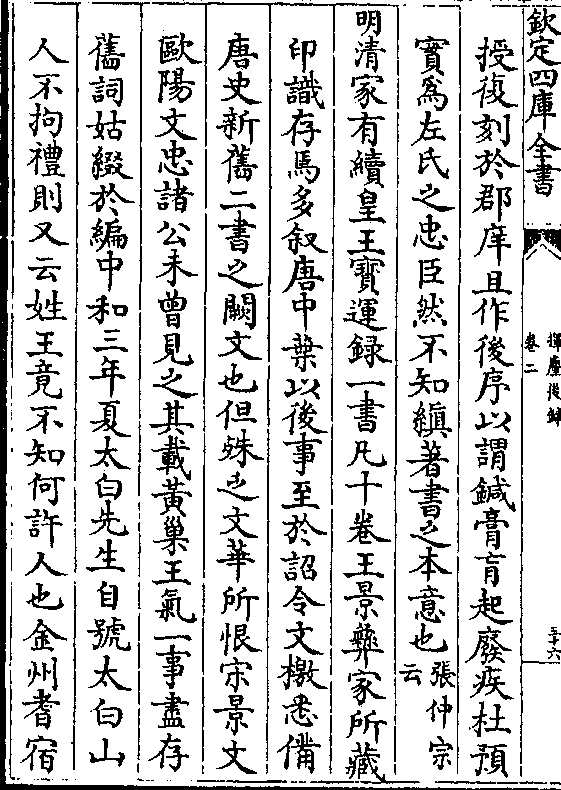 欽定四庫全書
揮麈後錄
卷二
三十六
授復刻於郡庠且作後序以謂鍼膏肓起廢疾杜預
實為左氏之忠臣然不知縝著書之本意也張仲宗云
明清家有續皇王寶運録一書凡十卷王景彝家所藏
印識存焉多叙唐中葉以後事至於詔令文檄悉備
唐史新舊二書之闕文也但殊乏文華所恨宋景文
歐陽文忠諸公未曽見之其載黃巢王氣一事盡存
舊詞姑綴於編中和三年夏太白先生自號太白山
人不拘禮則又云姓王竟不知何許人也金州耆宿